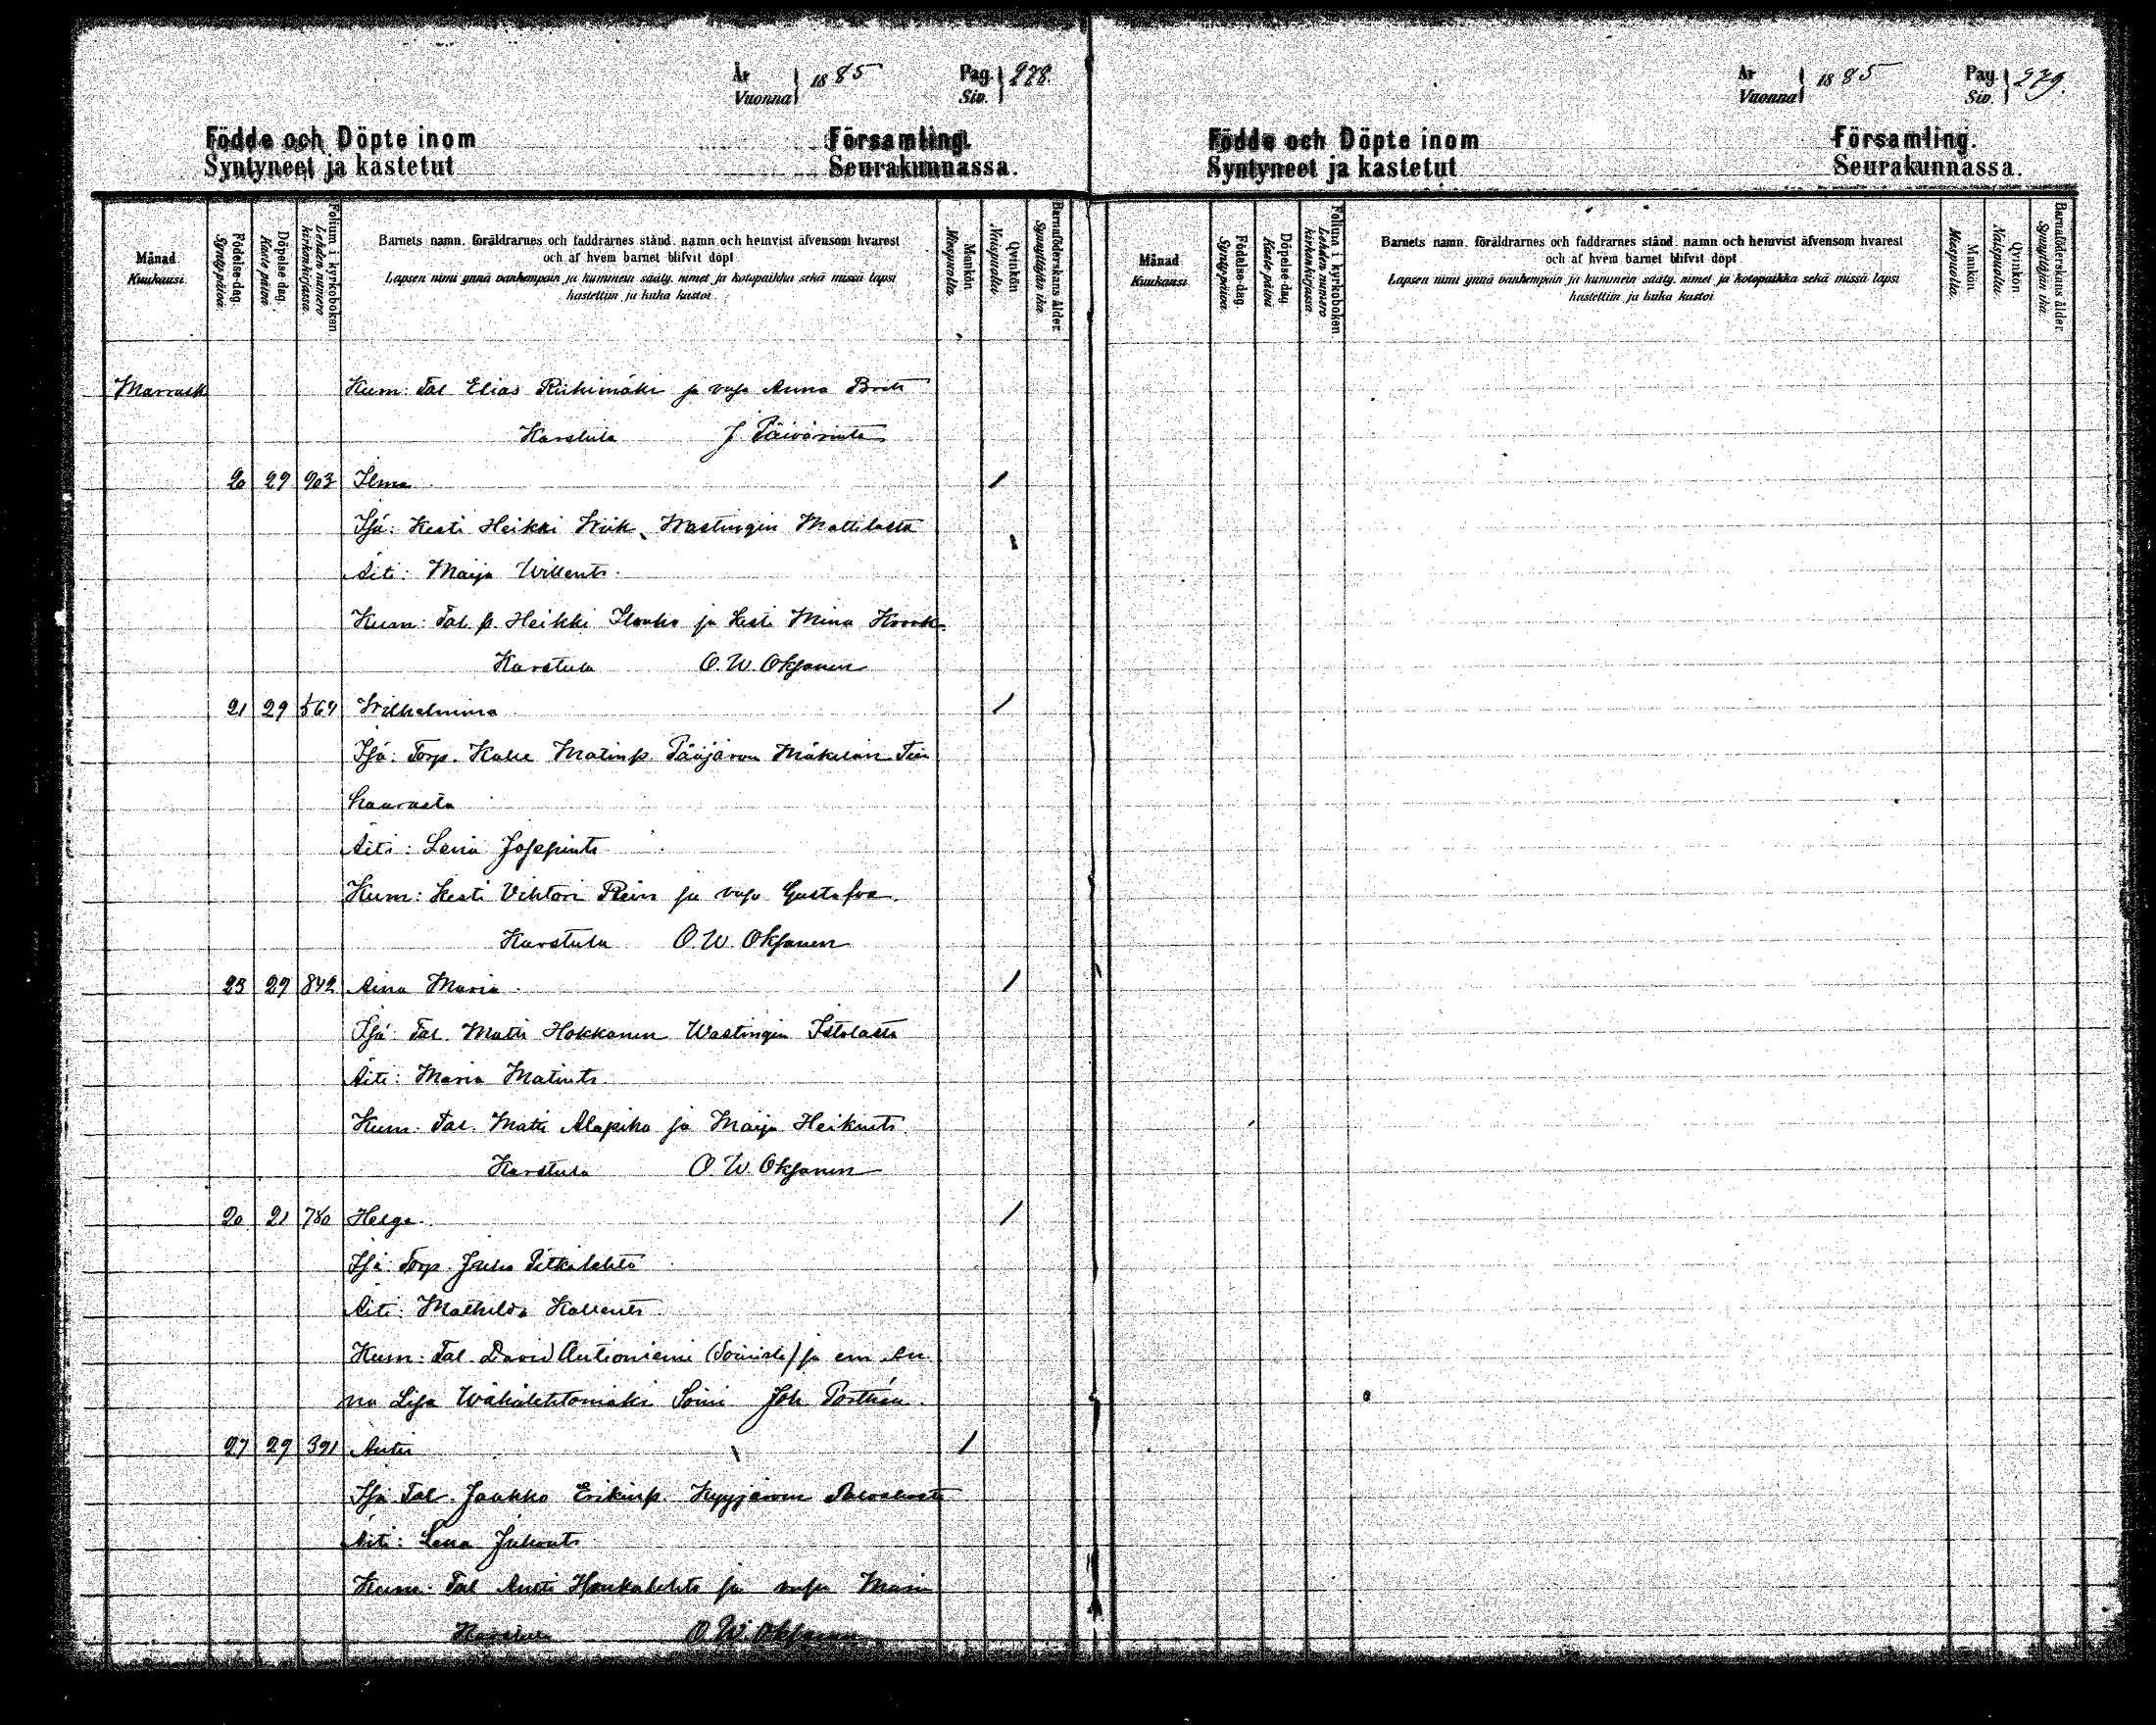 År
Vuonna 1885 Pag. Siv. 278.
Födde och Döpte inom Församling.
Syntyneet ja kastetut Seurakunnassa.
Månad
Kuukausi
Födelse-dag.
Synty-päivä.
Döpelse-dag.
Kaste-päivä
Folium i kyrkoboken
Lehden numero kirkonkirjassa.
Barnets namn, föräldrarnes och faddrarnes stånd, namn och hemvist äfvensom hvarest
och af hvem barnet blifvit döpt
Lapsen nimi ynnä vanhempain ja kummein sääty, nimet ja kotopaikka sekä missä lapsi
kastettiin ja kuka kastoi
Mankön
Miespuolta.
Qvinkön
Naispuolta.
Barnaföderskans ålder.
Synnyttäjän ikä.
Marrask Kum: Tal Elias Riihimäki ja vajo Anna Brita
Karstula J Päivärinta
20 29 903 Ilma
Isä: Kesti Heikki Wiik, Wastingin Mattilasta
Äiti: Maija Willents.
Kum: Tal. p. Heikki ja Kesti Mina
Karstula O. W. Oksanen
21 29 564 Wilhelmina
Isä: Torp. Kalle Matinp. Pääjärven Mäkelän
Äiti: Lena Josefints
Kum: Kesti Vihtori Rein ja vajo Gustafva.
Karstula O. W. Oksanen
23 29 842 Aina Maria
Isä: Tal. Matti Hokkanen Wastingin
Äiti: Maria Matints.
Kum: Tal. Matti Alapiha ja Maija Heikints.
Karstula O. W. Oksanen
20 21 780 Helga.
Isä: Torp. Juho Pitkälehto
Äiti: Mathilda Kallents
Kum: Tal. David Autioniemi (Soinista) ja em. An
na Lisa Wähälehtomäki Soini Joh Porthén.
27 29 391 Antti
Isä Tal. Jaakko Erikinp. Kyyjärven
Äiti: Lena Juhonts
Kum: Tal Antti Honkalehto ja vajo Maria
Karstula O. W. Oksanen
År
Vuonna 1885 Pag. Siv. 279.
Födde och Döpte inom Församling.
Syntyneet ja kastetut Seurakunnassa.
Månad
Kuukausi
Födelse-dag.
Synty-päivä.
Döpelse-dag.
Kaste-päivä
Folium i kyrkoboken
Lehden numero kirkonkirjassa.
Barnets namn, föräldrarnes och faddrarnes stånd, namn och hemvist äfvensom hvarest
och af hvem barnet blifvit döpt
Lapsen nimi ynnä vanhempain ja kummein sääty, nimet ja kotopaikka sekä missä lapsi
kastettiin ja kuka kastoi
Mankön
Miespuolta.
Qvinkön
Naispuolta.
Barnaföderskans ålder.
Synnyttäjän ikä.